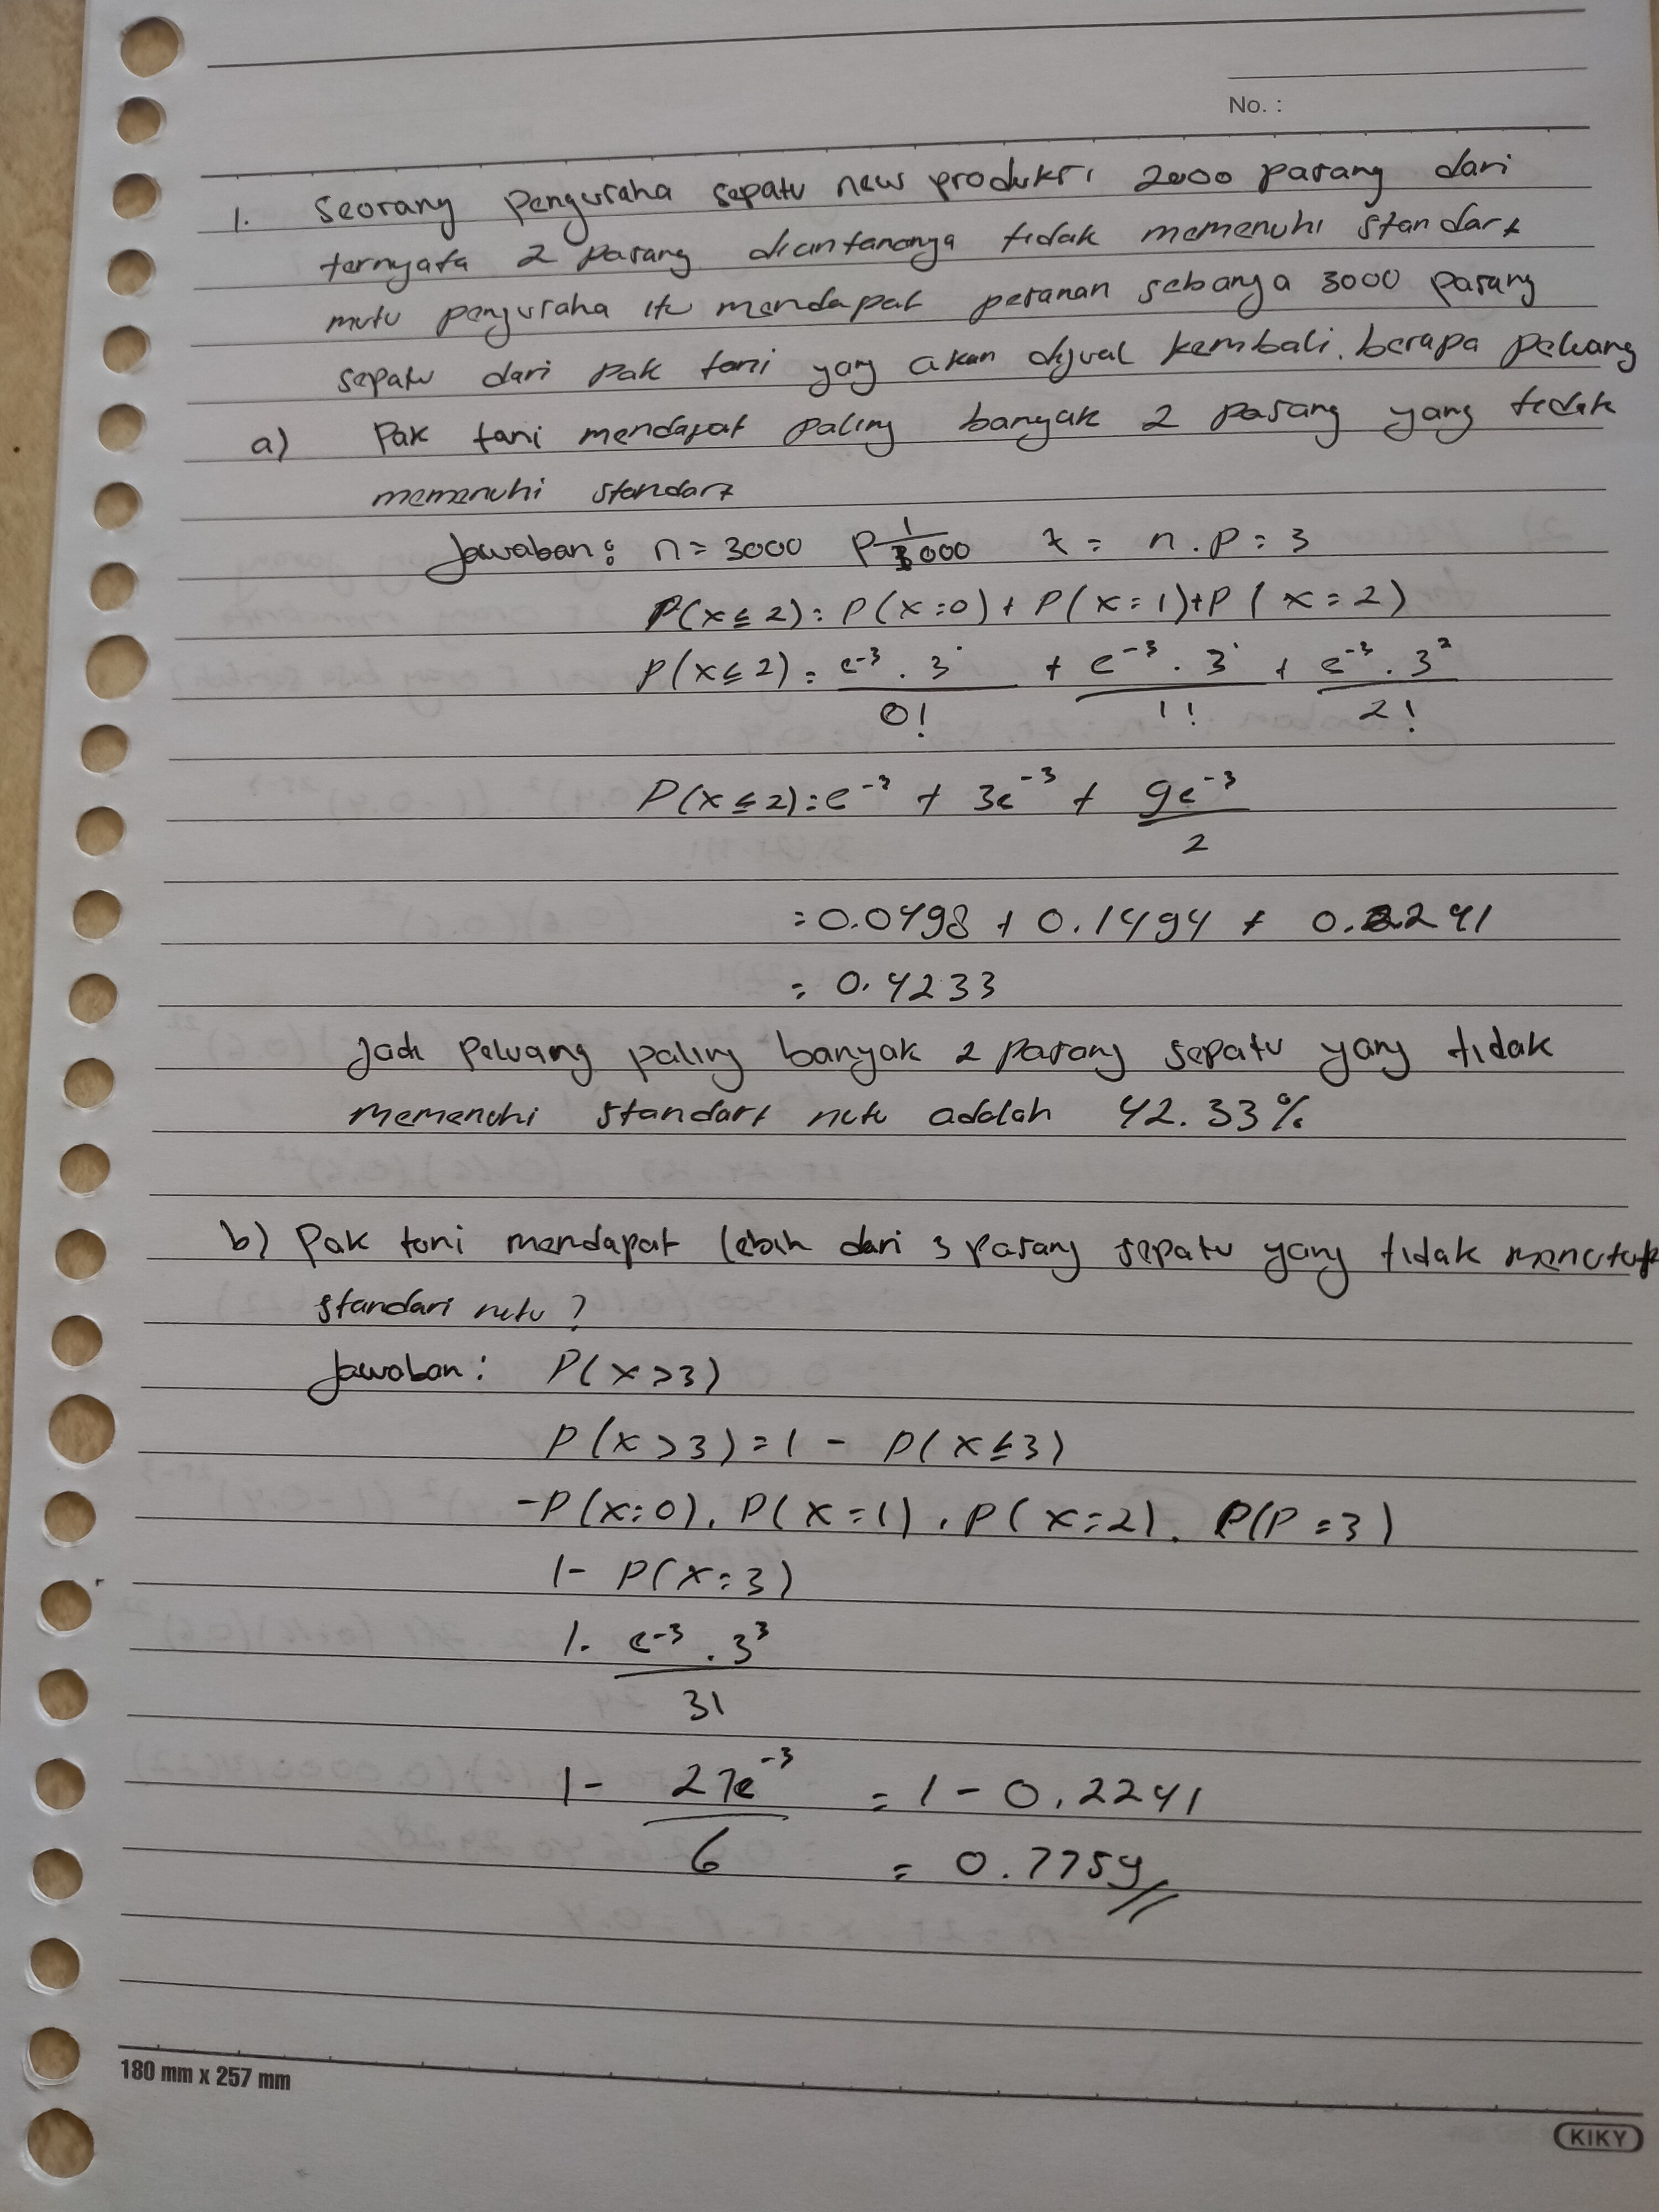 No. :
1. Seorang pengusaha sepatu new produksi 2000 pasang dari
ternyata 2 pasang diantaranya tidak memenuhi standart
mutu pengusaha itu mendapat pesanan sebanya 3000 pasang
sepatu dari pak toni yang akan dijual kembali. berapa peluang
a) Pak toni mendapat paling banyak 2 pasang yang tidak
memenuhi standart
Jawaban : n = 3000 P 1/3000 λ = n . p = 3
P(x ≤ 2) = P(x = 0) + P(x = 1) + P(x = 2)
P(x ≤ 2) = e⁻³ . 3˙/0! + e⁻³ . 3˙/1! + e⁻³ . 3²/2!
P(x ≤ 2) = e⁻³ + 3e⁻³ + 9e⁻³/2
= 0.0498 + 0.1494 + 0.2241
= 0.4233
Jadi peluang paling banyak 2 pasang sepatu yang tidak
memenuhi standart mutu adalah 42.33%
b) Pak toni mendapat lebih dari 3 pasang sepatu yang tidak
standari mutu ?
Jawaban : P(x > 3)
P(x > 3) = 1 - P(x ≤ 3)
-P(x = 0), P(x = 1), P(x = 2). P(P = 3)
1 - P(x = 3)
1 - e⁻³ . 3³/3!
1 - 27e⁻³/6 = 1 - 0.2241
= 0.7759
180 mm x 257 mm
KIKY